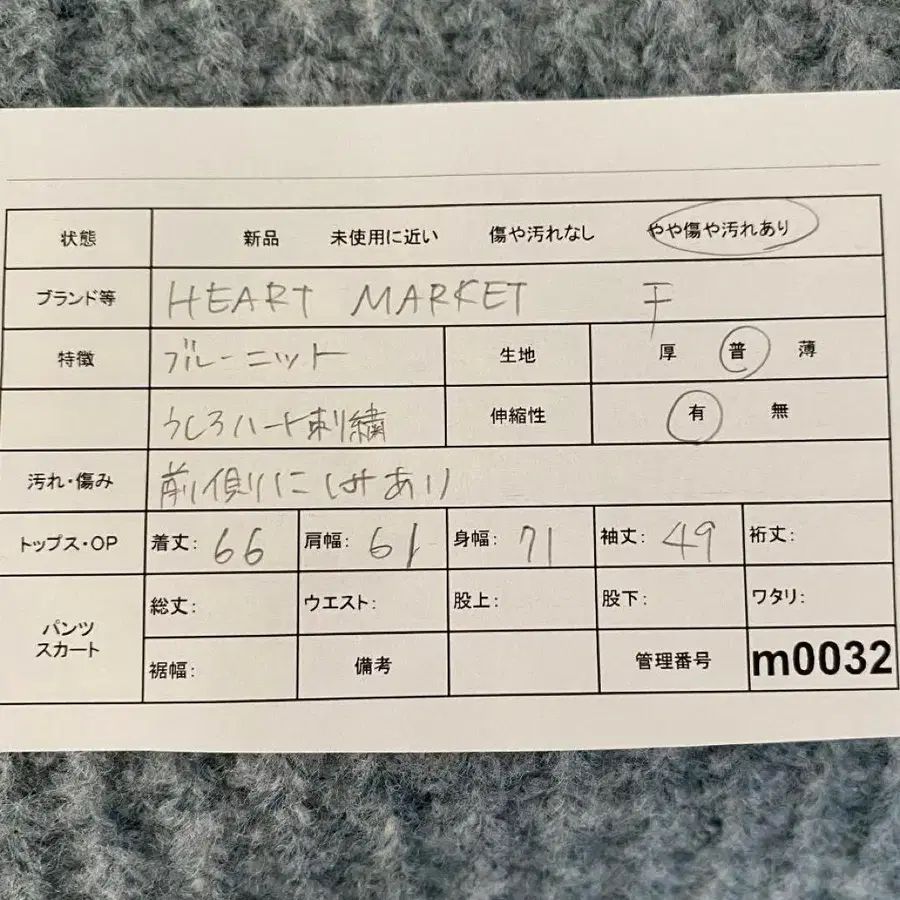 状態 新品 未使用に近い 傷や汚れなし やや傷や汚れあり
ブランド等 HEART MARKET F
特徴 ブルーニット 生地 厚 普 薄
うしろハート刺繍 伸縮性 有 無
汚れ・傷み 前側にしみあり
トップス・OP 着丈: 66 肩幅: 61 身幅: 71 袖丈: 49 裄丈:
パンツ スカート 総丈: ウエスト: 股上: 股下: ワタリ:
裾幅: 備考 管理番号 m0032